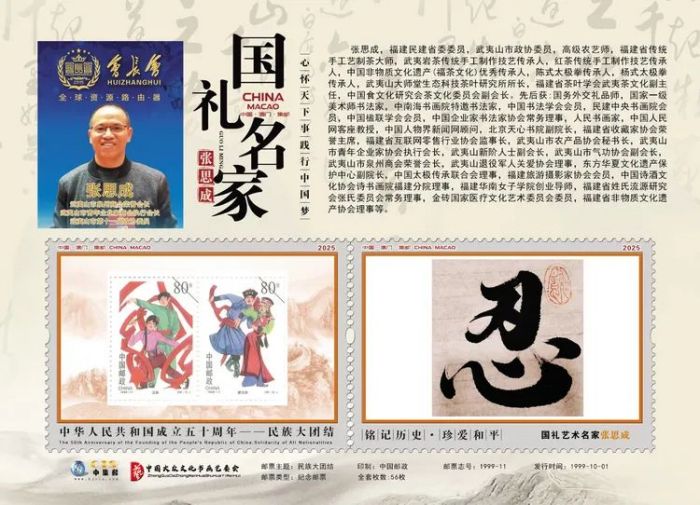 會長會
HUIZHANGHUI
全球资源路由器
张思成
国礼名家
CHINA
MACAO
中国·澳门·集邮
GUO LI MING JIA
张思成
心怀天下事践行中国梦
张思成，福建民建省委委员，武夷山市政协委员，高级农艺师，福建省传统
手工艺制茶大师，武夷岩茶传统手工制作技艺传承人，红茶传统手工制作技艺传承
人，中国非物质文化遗产(福茶文化)优秀传承人，陈式太极拳传承人，杨式太极拳
传承人，武夷山大师堂生态科技茶叶研究所所长，福建省茶叶学会武夷茶文化副主
任，中国食文化研究会茶文化委员会副会长。先后获：国务院文礼品师，国家一级
美术师书法家，中南海书画院特邀书法家，中国书法学会会员，民建中央书画院会
员，中国楹联学会会员，中国企业家书法家协会常务理事，人民书画家，中国人民
网客座教授，中国人物界新闻网顾问，北京天心书院副院长，福建省收藏家协会荣
誉主席，福建省互联网零售行业协会监事长，武夷山市农产品协会秘书长，武夷山
市青年企业家协会执行会长，武夷山新阶人士副会长，武夷山市气功协会副会长，
武夷山市泉州商会荣誉会长，武夷山退役军人关爱协会理事，东方华夏文化遗产保
护中心副院长，中国太极传承联合会理事，福建旅游摄影家协会会员，中国诗酒文
化协会诗书画院福建分院理事，福建华南女子学院创业导师，福建省姓氏源流研究
会张氏委员会常务理事，金砖国家医疗文化艺术委员会委员，福建省非物质文化遗
产协会理事等。
中国·澳门·集邮 CHINA MACAO
2025
80分
80分
中国邮政
CHINA
中国邮政
CHINA
中华人民共和国成立五十周年——民族大团结
The 50th Anniversary of the Founding of the People's Republic of China.Solidarity of All Nationalities
中国·澳门·集邮 CHINA MACAO
2025
忍
铭记历史·珍爱和平
国礼艺术名家张思成
中集邮
中国大众文化书画艺委会
邮票主题：民族大团结
邮票类型：纪念邮票
印制：中国邮政
全套枚数：56枚
邮票志号：1999-11
发行时间：1999-10-01